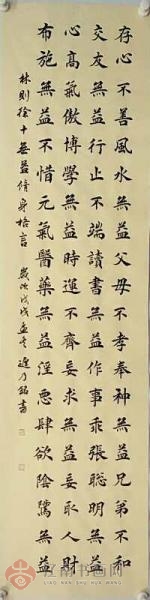 存心不善風水無益父母不孝奉神無益兄弟不和
交友無益行止不端讀書無益作事乖張聰明無益
心高氣傲博學無益時運不齊妄求無益妄取人財
布施無益不惜元氣醫藥無益淫惡肆欲陰騭無益
林則徐十無益修身格言 歲次戊戌孟冬 乃銘書
江南书画网